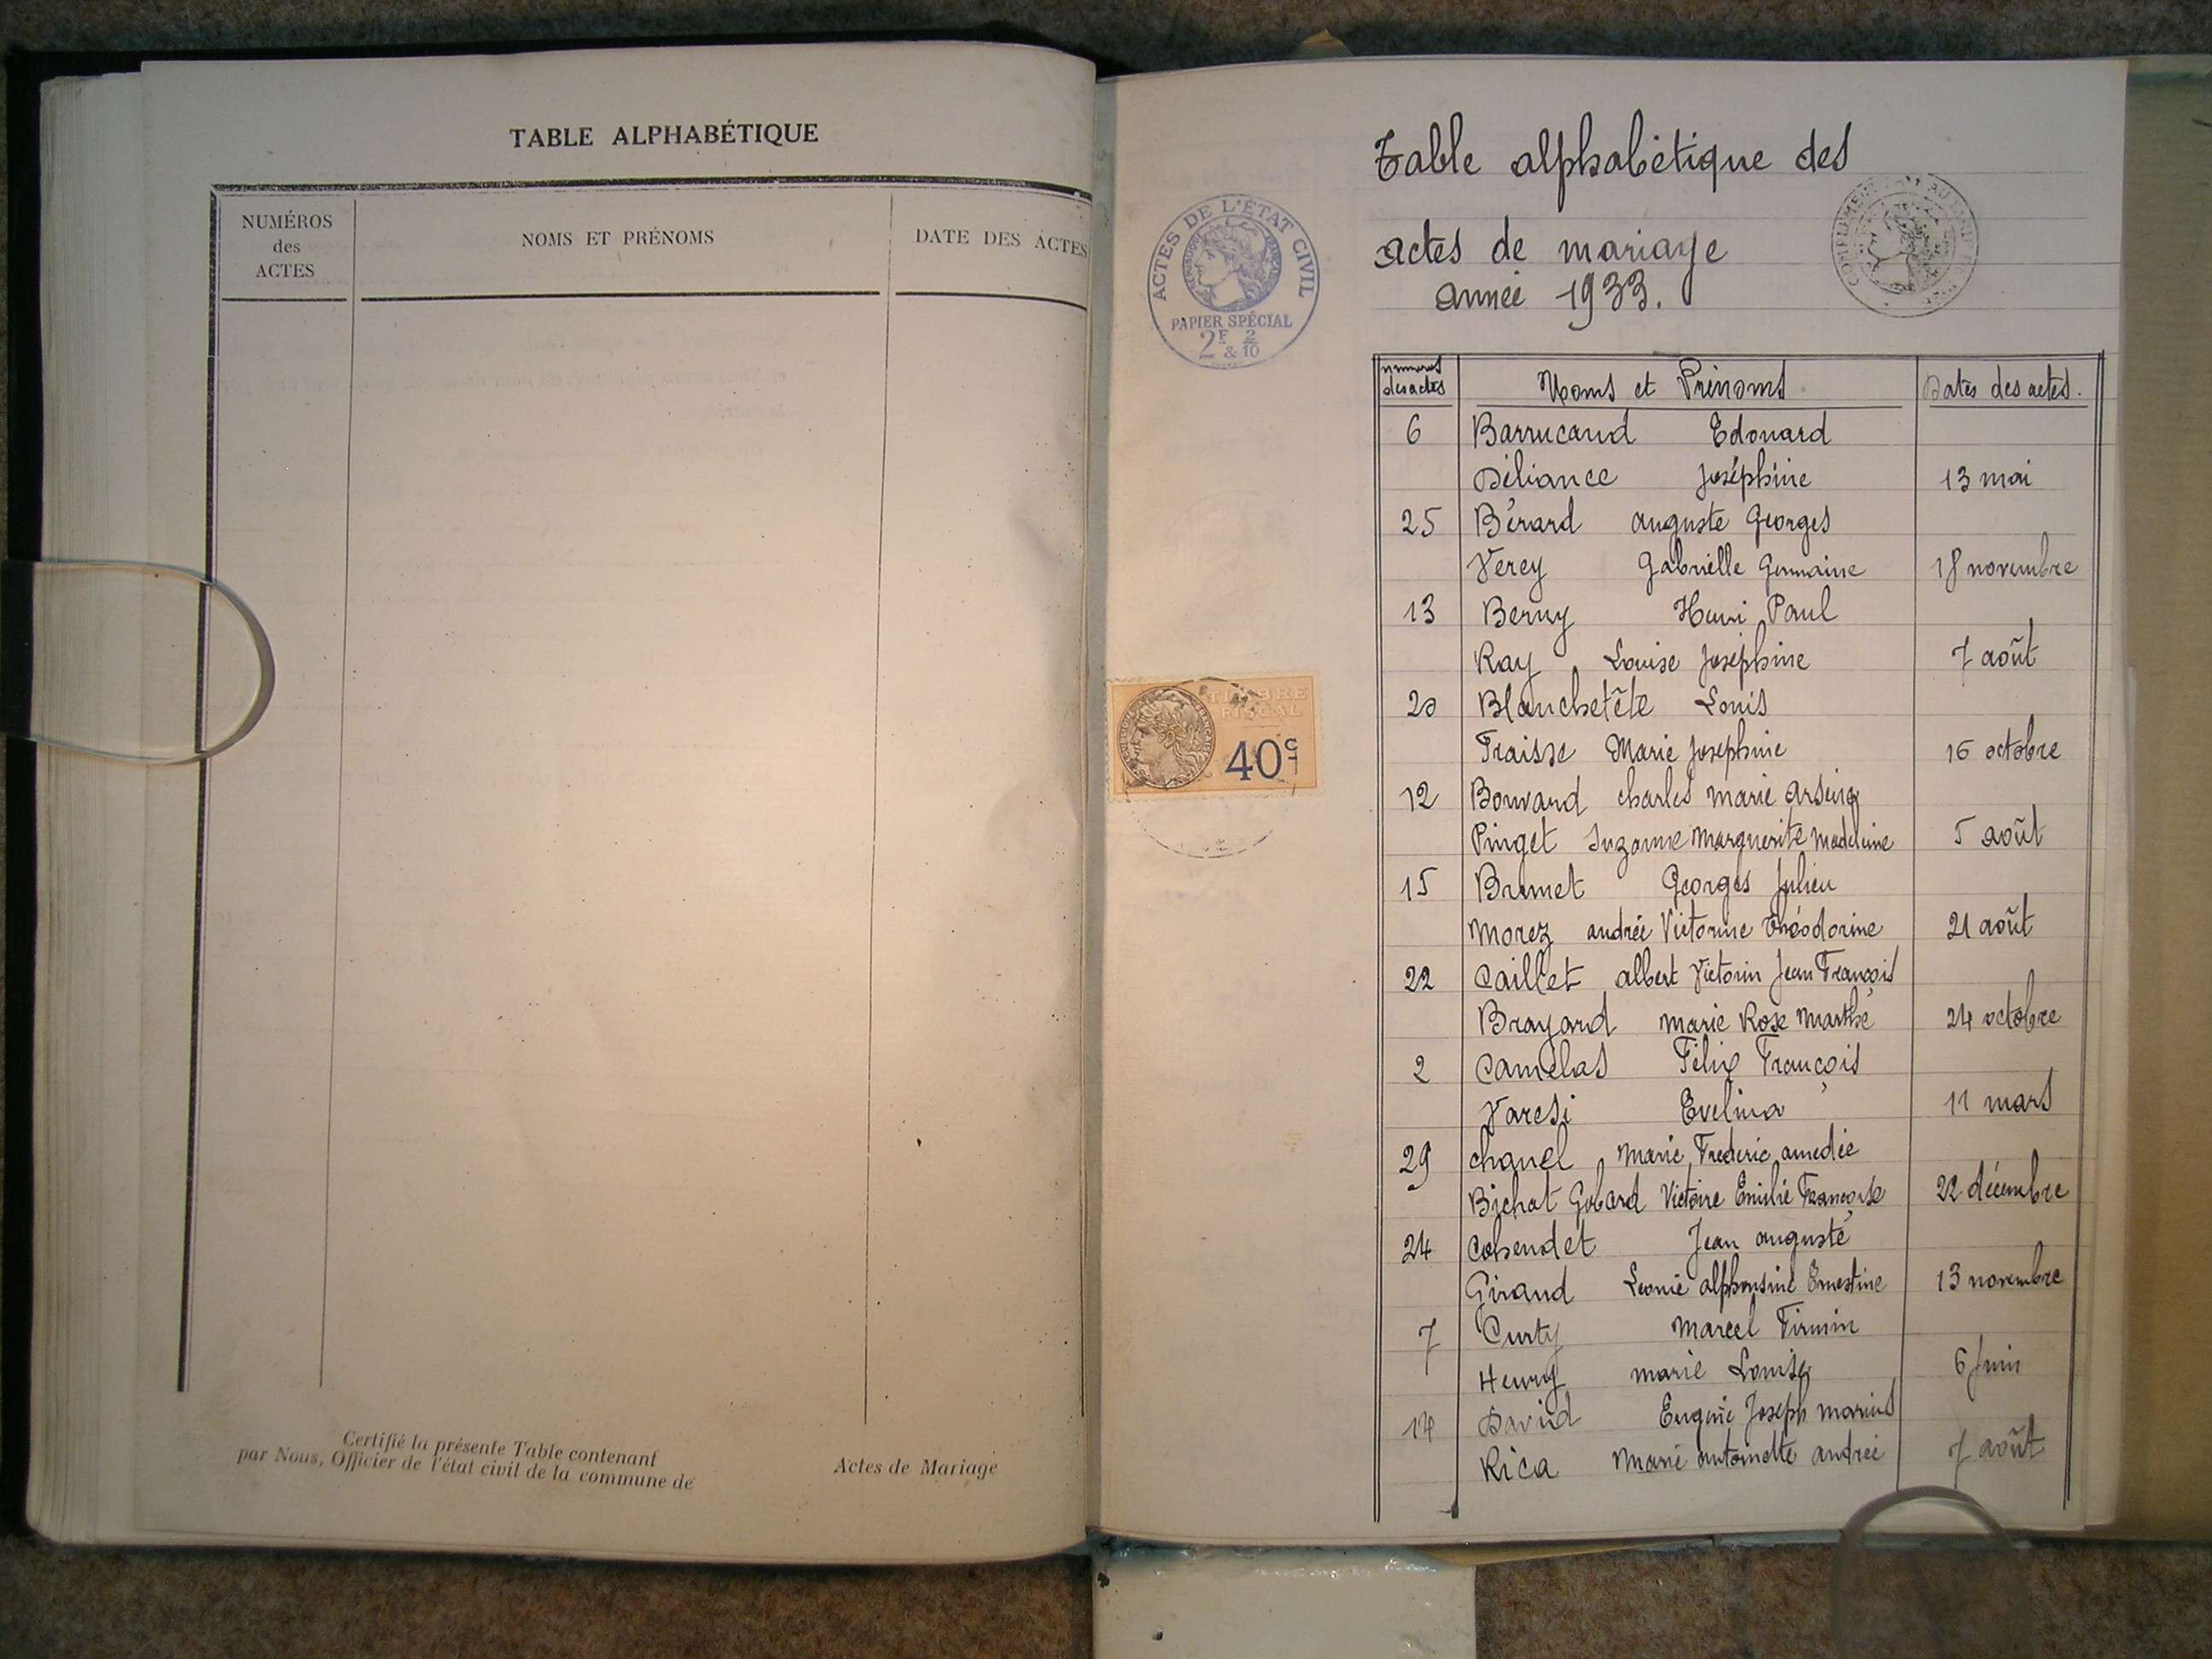 TABLE ALPHABÉTIQUE
NUMÉROS
des
ACTES
NOMS ET PRÉNOMS
DATE DES ACTES
Certifié la présente Table contenant
par Nous, Officier de l'état civil de la commune de
Actes de Mariage
ACTES DE L'ÉTAT CIVIL
RÉPUBLIQUE FRANÇAISE
PAPIER SPÉCIAL
2F 2
& 10
TIMBRE
FISCAL
40c
Table alphabétique des
actes de mariage
année 1933.
numéros
des actes
Noms et Prénoms
Dates des actes.
6 Barrucand Edouard
Déliance Joséphine 13 mai
25 Bérard auguste Georges
Verey Gabrielle Germaine 18 novembre
13 Berny Henri Paul
Ray Louise Joséphine 7 août
20 Blanchetête Louis
Fraisse Marie Josephine 16 octobre
12 Bouvard charles marie arsène
Pinget Suzanne Marguerite Madeleine 5 août
15 Brunet Georges Julien
Morez andrée Victorine théodorine 21 août
22 Caillet albert Victorin Jean François
Brayard Marie Rose Marthe 24 octobre
2 Camelas Félix François
Varesi Evelina 11 mars
29 Chanel Marie Frederic amedée
Bichat Gobard Victoire Emilie Françoise 22 décembre
24 Cohendet Jean auguste
Giraud Leonie alphonsine Ernestine 13 novembre
7 Curty Marcel Firmin
Henry marie Louise 6 Juin
14 David Eugène Joseph marius
Rica Marie antoinette andrée 7 août